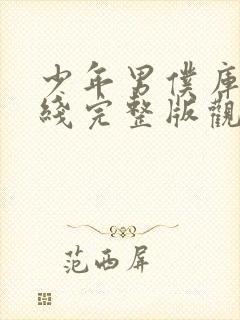 少年男僕庫
綫完整版觀
范西屏